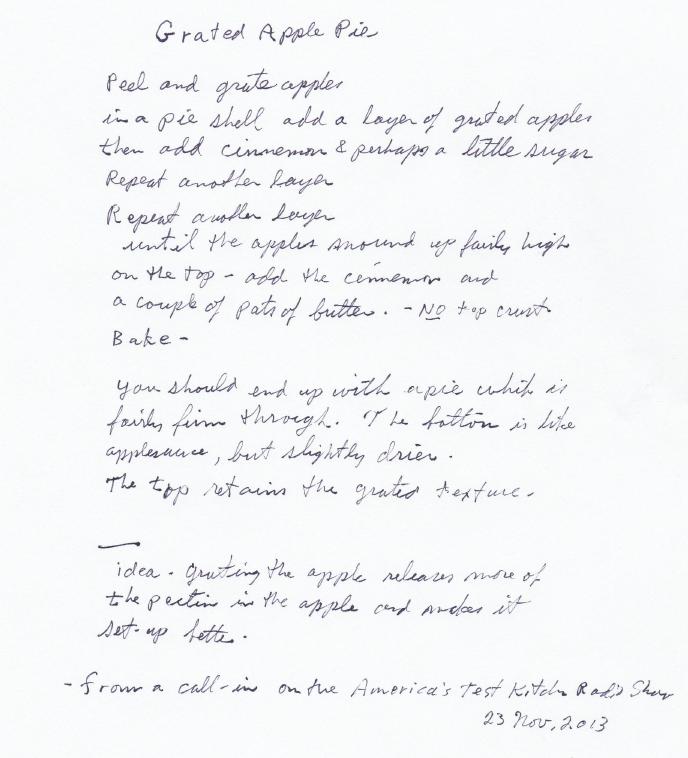 Grated Apple Pie
Peel and grate apples
in a pie shell add a layer of grated apples
then add cinnemon & perhaps a little sugar
Repeat another layer
Repeat another layer
until the apples mound up fairly high
on the top - add the cinnemon and
a couple of pats of butter. - No top crust
Bake -
You should end up with a pie which is
fairly firm through. The bottom is like
applesauce, but slightly drier.
The top retains the grated texture.
idea - Grating the apple releases more of
the pectin in the apple and makes it
set-up better.
- from a call-in on the America's Test Kitchn Radio Show
23 Nov, 2013